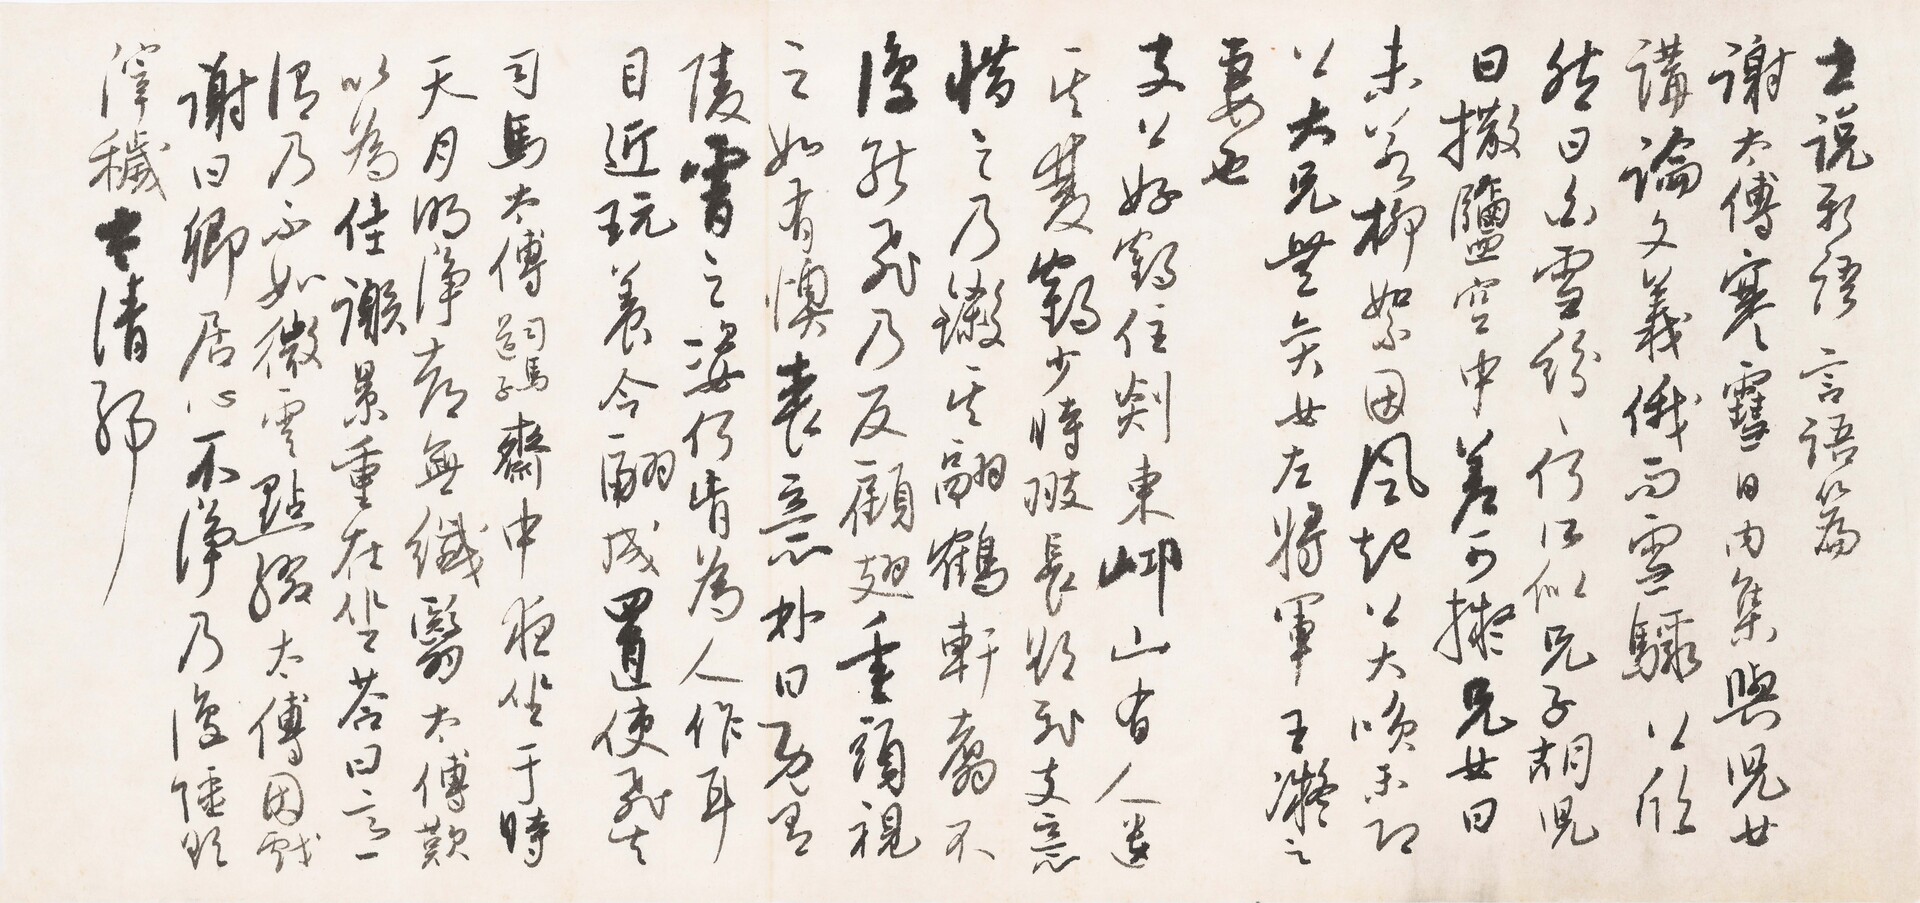 世說新語 言語篇
謝太傅寒雪日內集與兒女
講論文義俄而雪驟公欣
然曰白雪紛紛何所似兄子胡兒
曰撒鹽空中差可擬兄女曰
未若柳絮因風起公大唤
公大兄無奕女左將軍王凝之
妻也
支公好鶴住剡東岇山有人遺
其雙鶴少時翅長欲飛支意
惜之乃鎩其翮鶴軒翥不
復能飛乃反顧翅垂頭視
之如有懊喪意林曰既有
陵霄之姿何肯為人作耳
目近玩養令翮成置使飛去
司馬太傅齋中夜坐于時
天月明淨都無纖翳太傅歎
以為佳謝景重在坐答曰意
謂乃不如微雲點綴太傅因戲
謝曰卿居心不淨乃復強欲
滓穢太清邪